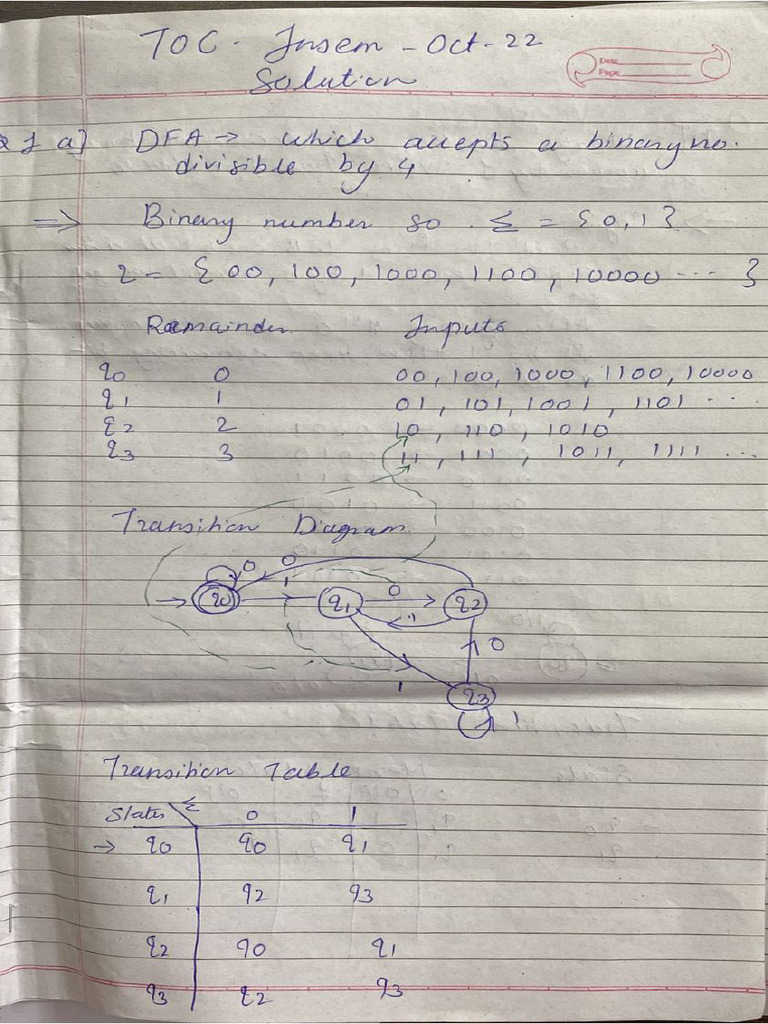 TOC - Insem - Oct - 22
Solution
Date
Page
Q 1 a] DFA → which accepts a binary no.
divisible by 4
⇒ Binary number so Σ = {0,1}
2 = { 00, 100, 1000, 1100, 10000 ... }
Remainder Inputs
q0 0 00, 100, 1000, 1100, 10000
q1 1 01, 101, 1001, 1101 ...
q2 2 10, 110, 1010
q3 3 11, 111, 1011, 1111 ...
Transition Diagram
0 0
→ q0 1 q1 0 q2
1
0
1
q3
1
Transition Table
States Σ 0 1
→ q0 q0 q1
q1 q2 q3
q2 q0 q1
q3 q2 q3